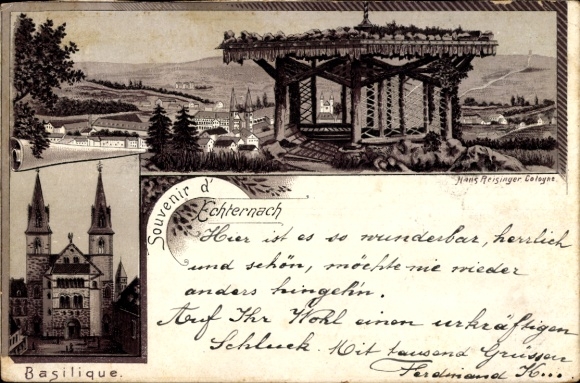 Hans Reisinger. Cologne.
Souvenir d'
Echternach
Hier ist es so wunderbar, herrlich
und schön, möchte nie wieder
anders hingeh'n.
Auf Ihr Wohl einen urkräftigen
Schluck. Mit tausend Grüssen
Ferdinand K...
Basilique.